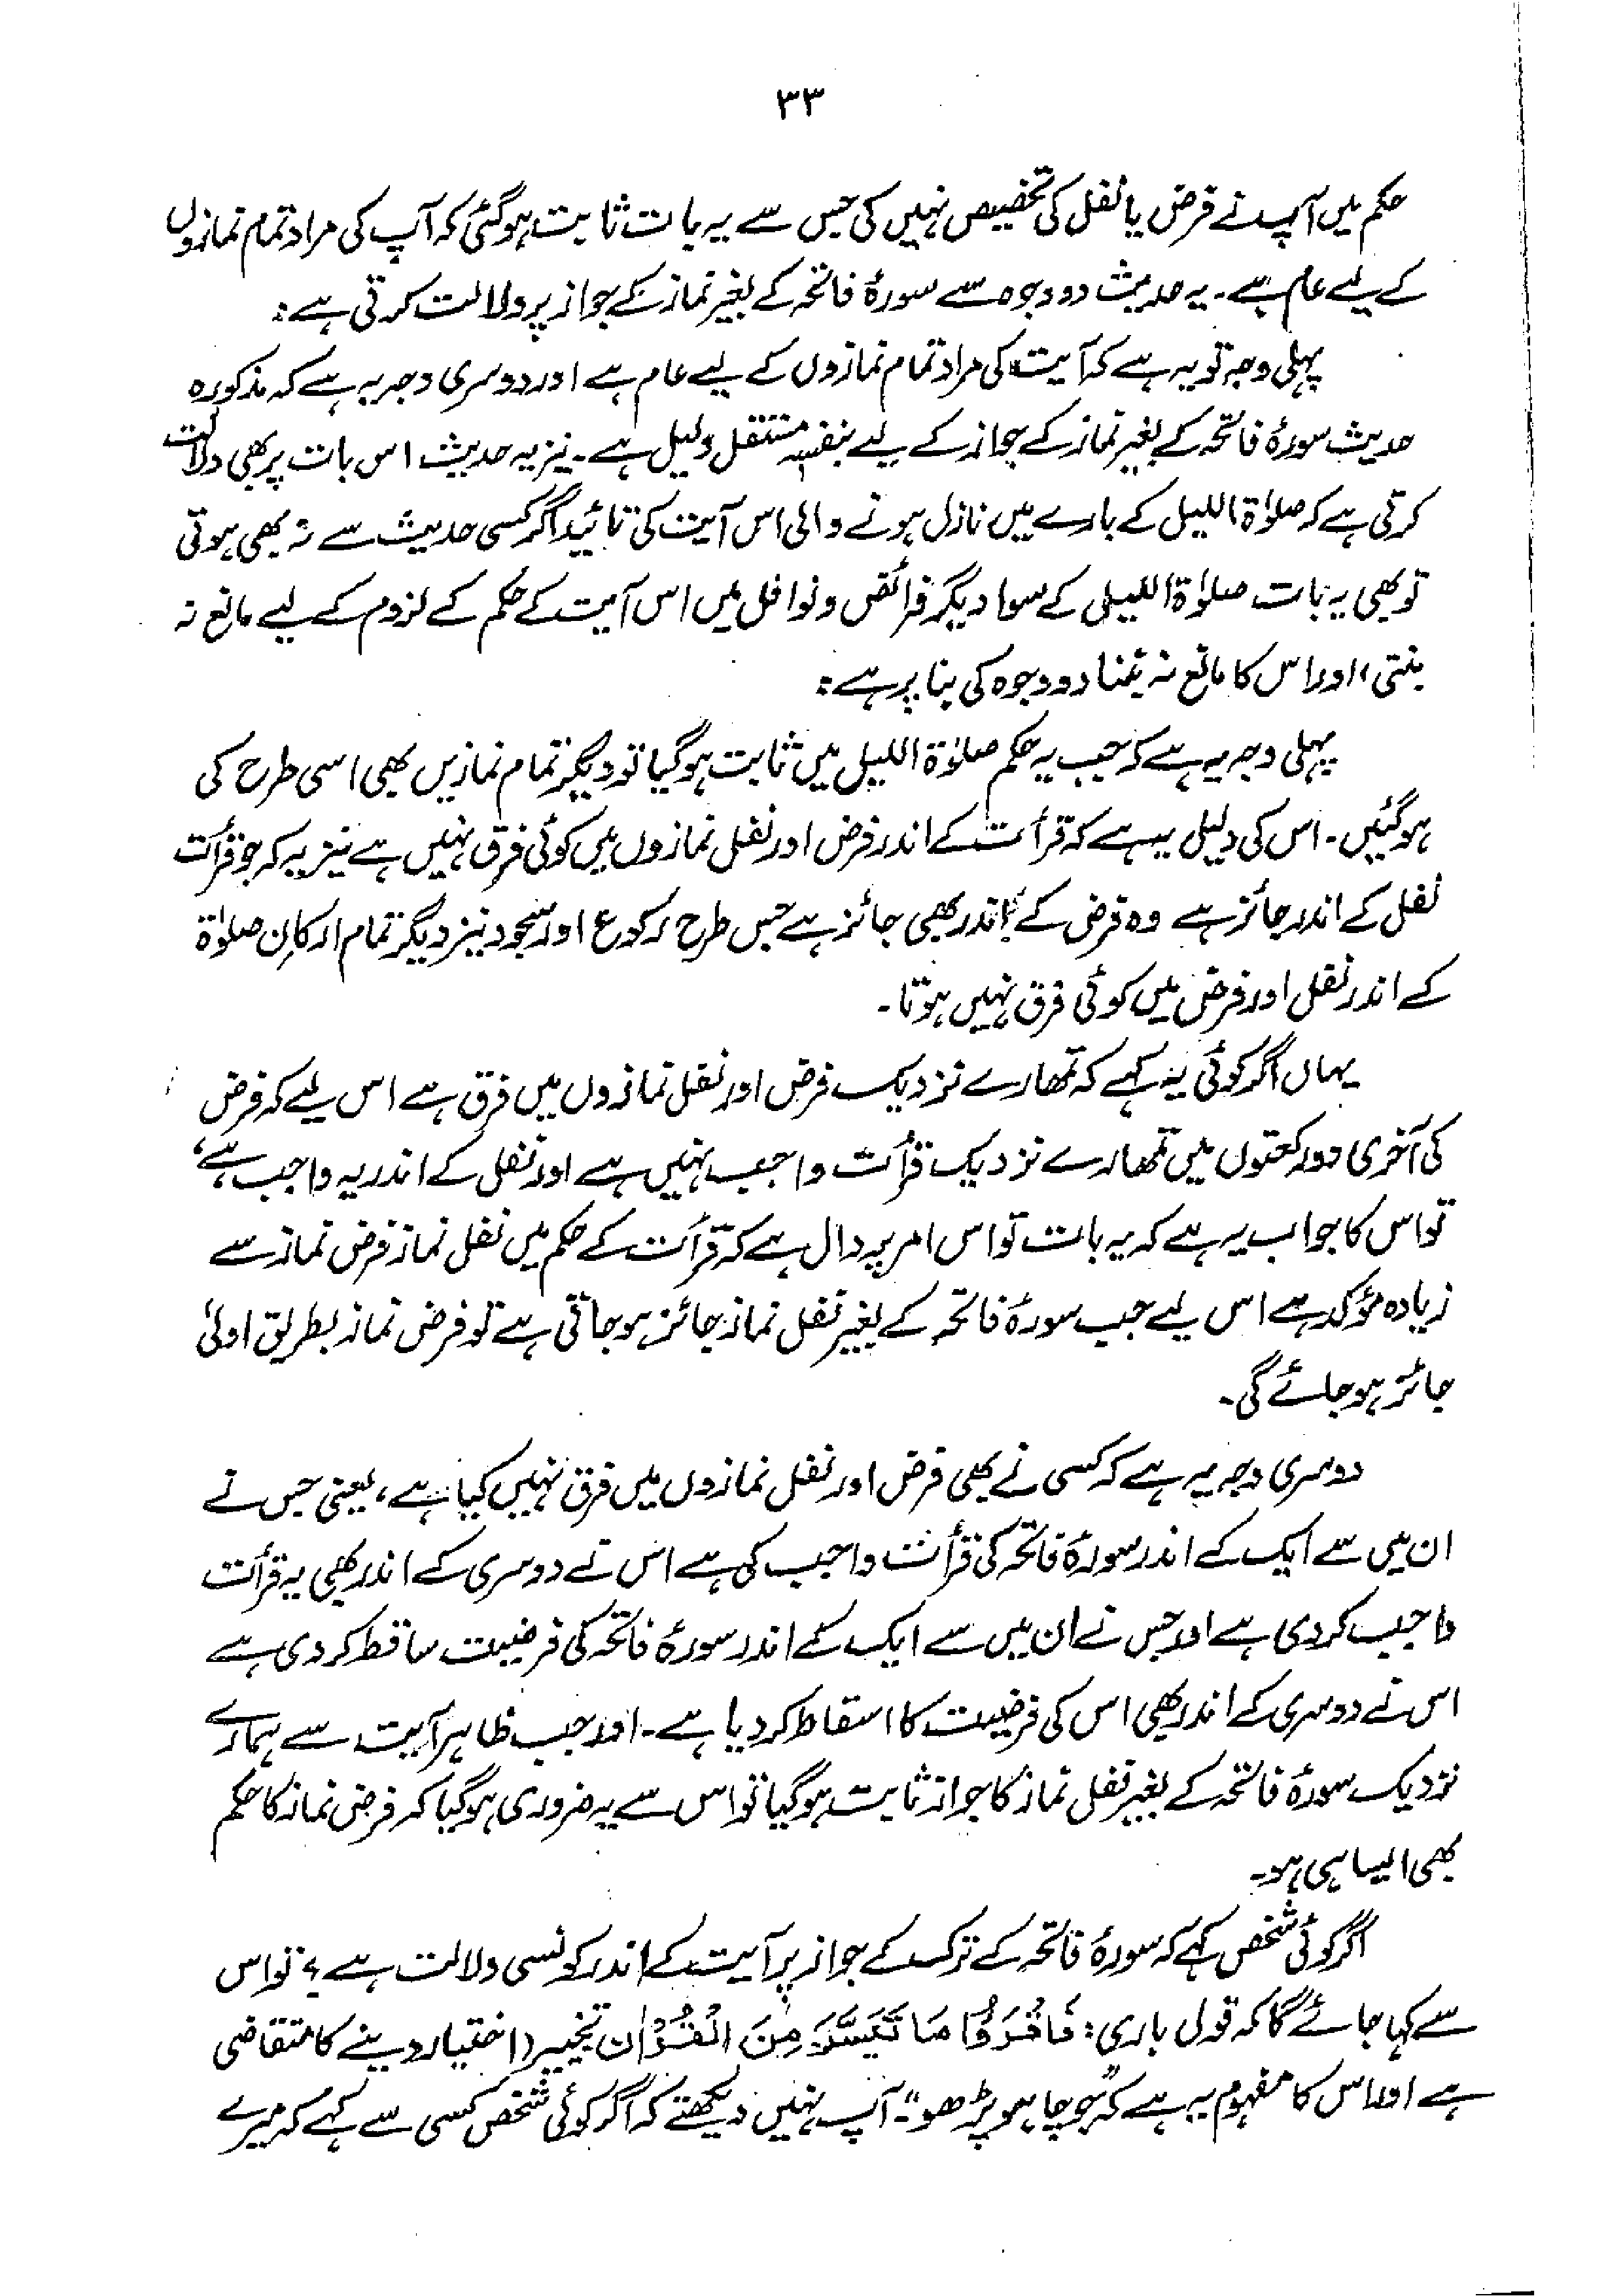 ۳۳
حکم میں آپ نے فرض یا نفل کی تخصیص نہیں کی جس سے یہ بات ثابت ہوگئی کہ آپ کی مراد تمام نمازوں
کے لیے عام ہے۔ یہ حدیث دو وجوہ سے سورۂ فاتحہ کے بغیر نماز کے جواز پر دلالت کرتی ہے:
پہلی وجہ تو یہ ہے کہ آیت کی مراد تمام نمازوں کے لیے عام ہے اور دوسری وجہ یہ ہے کہ مذکورہ
حدیث سورۂ فاتحہ کے بغیر نماز کے جواز کے لیے بنفسہ مستقل دلیل ہے۔ نیز یہ حدیث اس بات پر بھی دلالت
کرتی ہے کہ صلوٰۃ اللیل کے بارے میں نازل ہونے والی اس آیت کی تائید اگر کسی حدیث سے نہ بھی ہوتی
تو بھی یہ بات صلوٰۃ اللیل کے سوا دیگر فرائض و نوافل میں اس آیت کے حکم کے لزوم کے لیے مانع نہ
بنتی، اور اس کا مانع نہ بننا دو وجوہ کی بنا پر ہے:
پہلی وجہ یہ ہے کہ جب یہ حکم صلوٰۃ اللیل میں ثابت ہوگیا تو دیگر تمام نمازیں بھی اسی طرح کی
ہوگئیں۔ اس کی دلیل یہ ہے کہ قرأت کے اندر فرض اور نفل نمازوں میں کوئی فرق نہیں ہے نیز یہ کہ جو قرأت
نفل کے اندر جائز ہے وہ فرض کے اندر بھی جائز ہے جس طرح رکوع اور سجود نیز دیگر تمام ارکانِ صلوٰۃ
کے اندر نفل اور فرض میں کوئی فرق نہیں ہوتا۔
یہاں اگر کوئی یہ کہے کہ تمھارے نزدیک فرض اور نفل نمازوں میں فرق ہے اس لیے کہ فرض
کی آخری دو رکعتوں میں تمھارے نزدیک قرأت واجب نہیں ہے اور نفل کے اندر یہ واجب ہے،
تو اس کا جواب یہ ہے کہ یہ بات تو اس امر پر دال ہے کہ قرأت کے حکم میں نفل نماز فرض نماز سے
زیادہ مؤکد ہے اس لیے جب سورۂ فاتحہ کے بغیر نفل نماز جائز ہو جاتی ہے تو فرض نماز بطریق اولیٰ
جائز ہو جائے گی۔
دوسری وجہ یہ ہے کہ کسی نے بھی فرض اور نفل نمازوں میں فرق نہیں کیا ہے، یعنی جس نے
ان میں سے ایک کے اندر سورۂ فاتحہ کی قرأت واجب کی ہے اس نے دوسری کے اندر بھی یہ قرأت
واجب کردی ہے اور جس نے ان میں سے ایک کے اندر سورۂ فاتحہ کی فرضیت ساقط کردی ہے
اس نے دوسری کے اندر بھی اس کی فرضیت کا اسقاط کر دیا ہے۔ اور جب ظاہر آیت سے ہمارے
نزدیک سورۂ فاتحہ کے بغیر نفل نماز کا جواز ثابت ہوگیا تو اس سے یہ ضروری ہوگیا کہ فرض نماز کا حکم
بھی ایسا ہی ہو۔
اگر کوئی شخص کہے کہ سورۂ فاتحہ کے ترک کے جواز پر آیت کے اندر کونسی دلالت ہے؟ تو اس
سے کہا جائے گا کہ قول باری: فَاقْرَءُوْا مَا تَيَسَّرَ مِنَ الْقُرْاٰن تخییر (اختیار دینے کا متقاضی
ہے اور اس کا مفہوم یہ ہے کہ "جو چاہو پڑھو"۔ آپ نہیں دیکھتے کہ اگر کوئی شخص کسی سے کہے کہ میرے